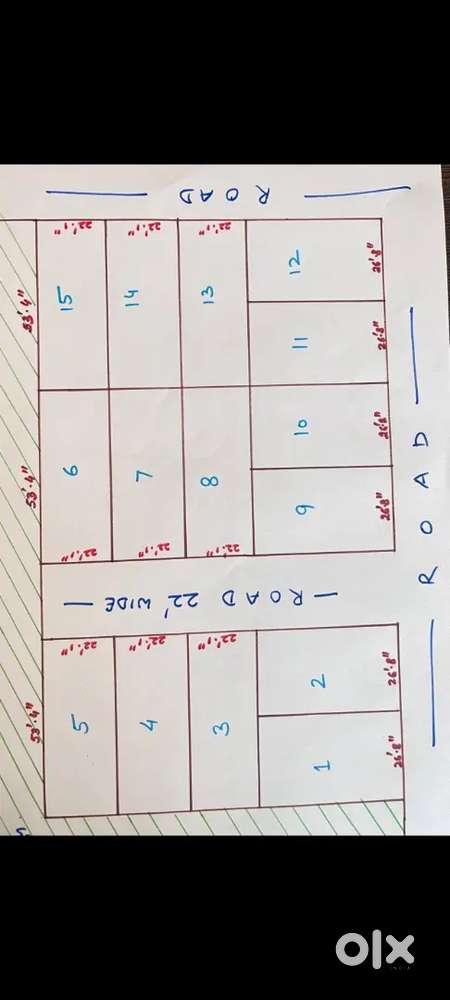 ROAD
22'.1"
22'.1"
22'.1"
53'.4"
15
14
13
12
26'.8"
11
26'.8"
53'.4"
6
7
8
10
26'.8"
9
26'.8"
22'.1"
22'.1"
22'.1"
ROAD
- ROAD 22' WIDE -
22'.1"
22'.1"
22'.1"
53'.4"
5
4
3
2
26'.8"
1
26'.8"
olx
INDIA